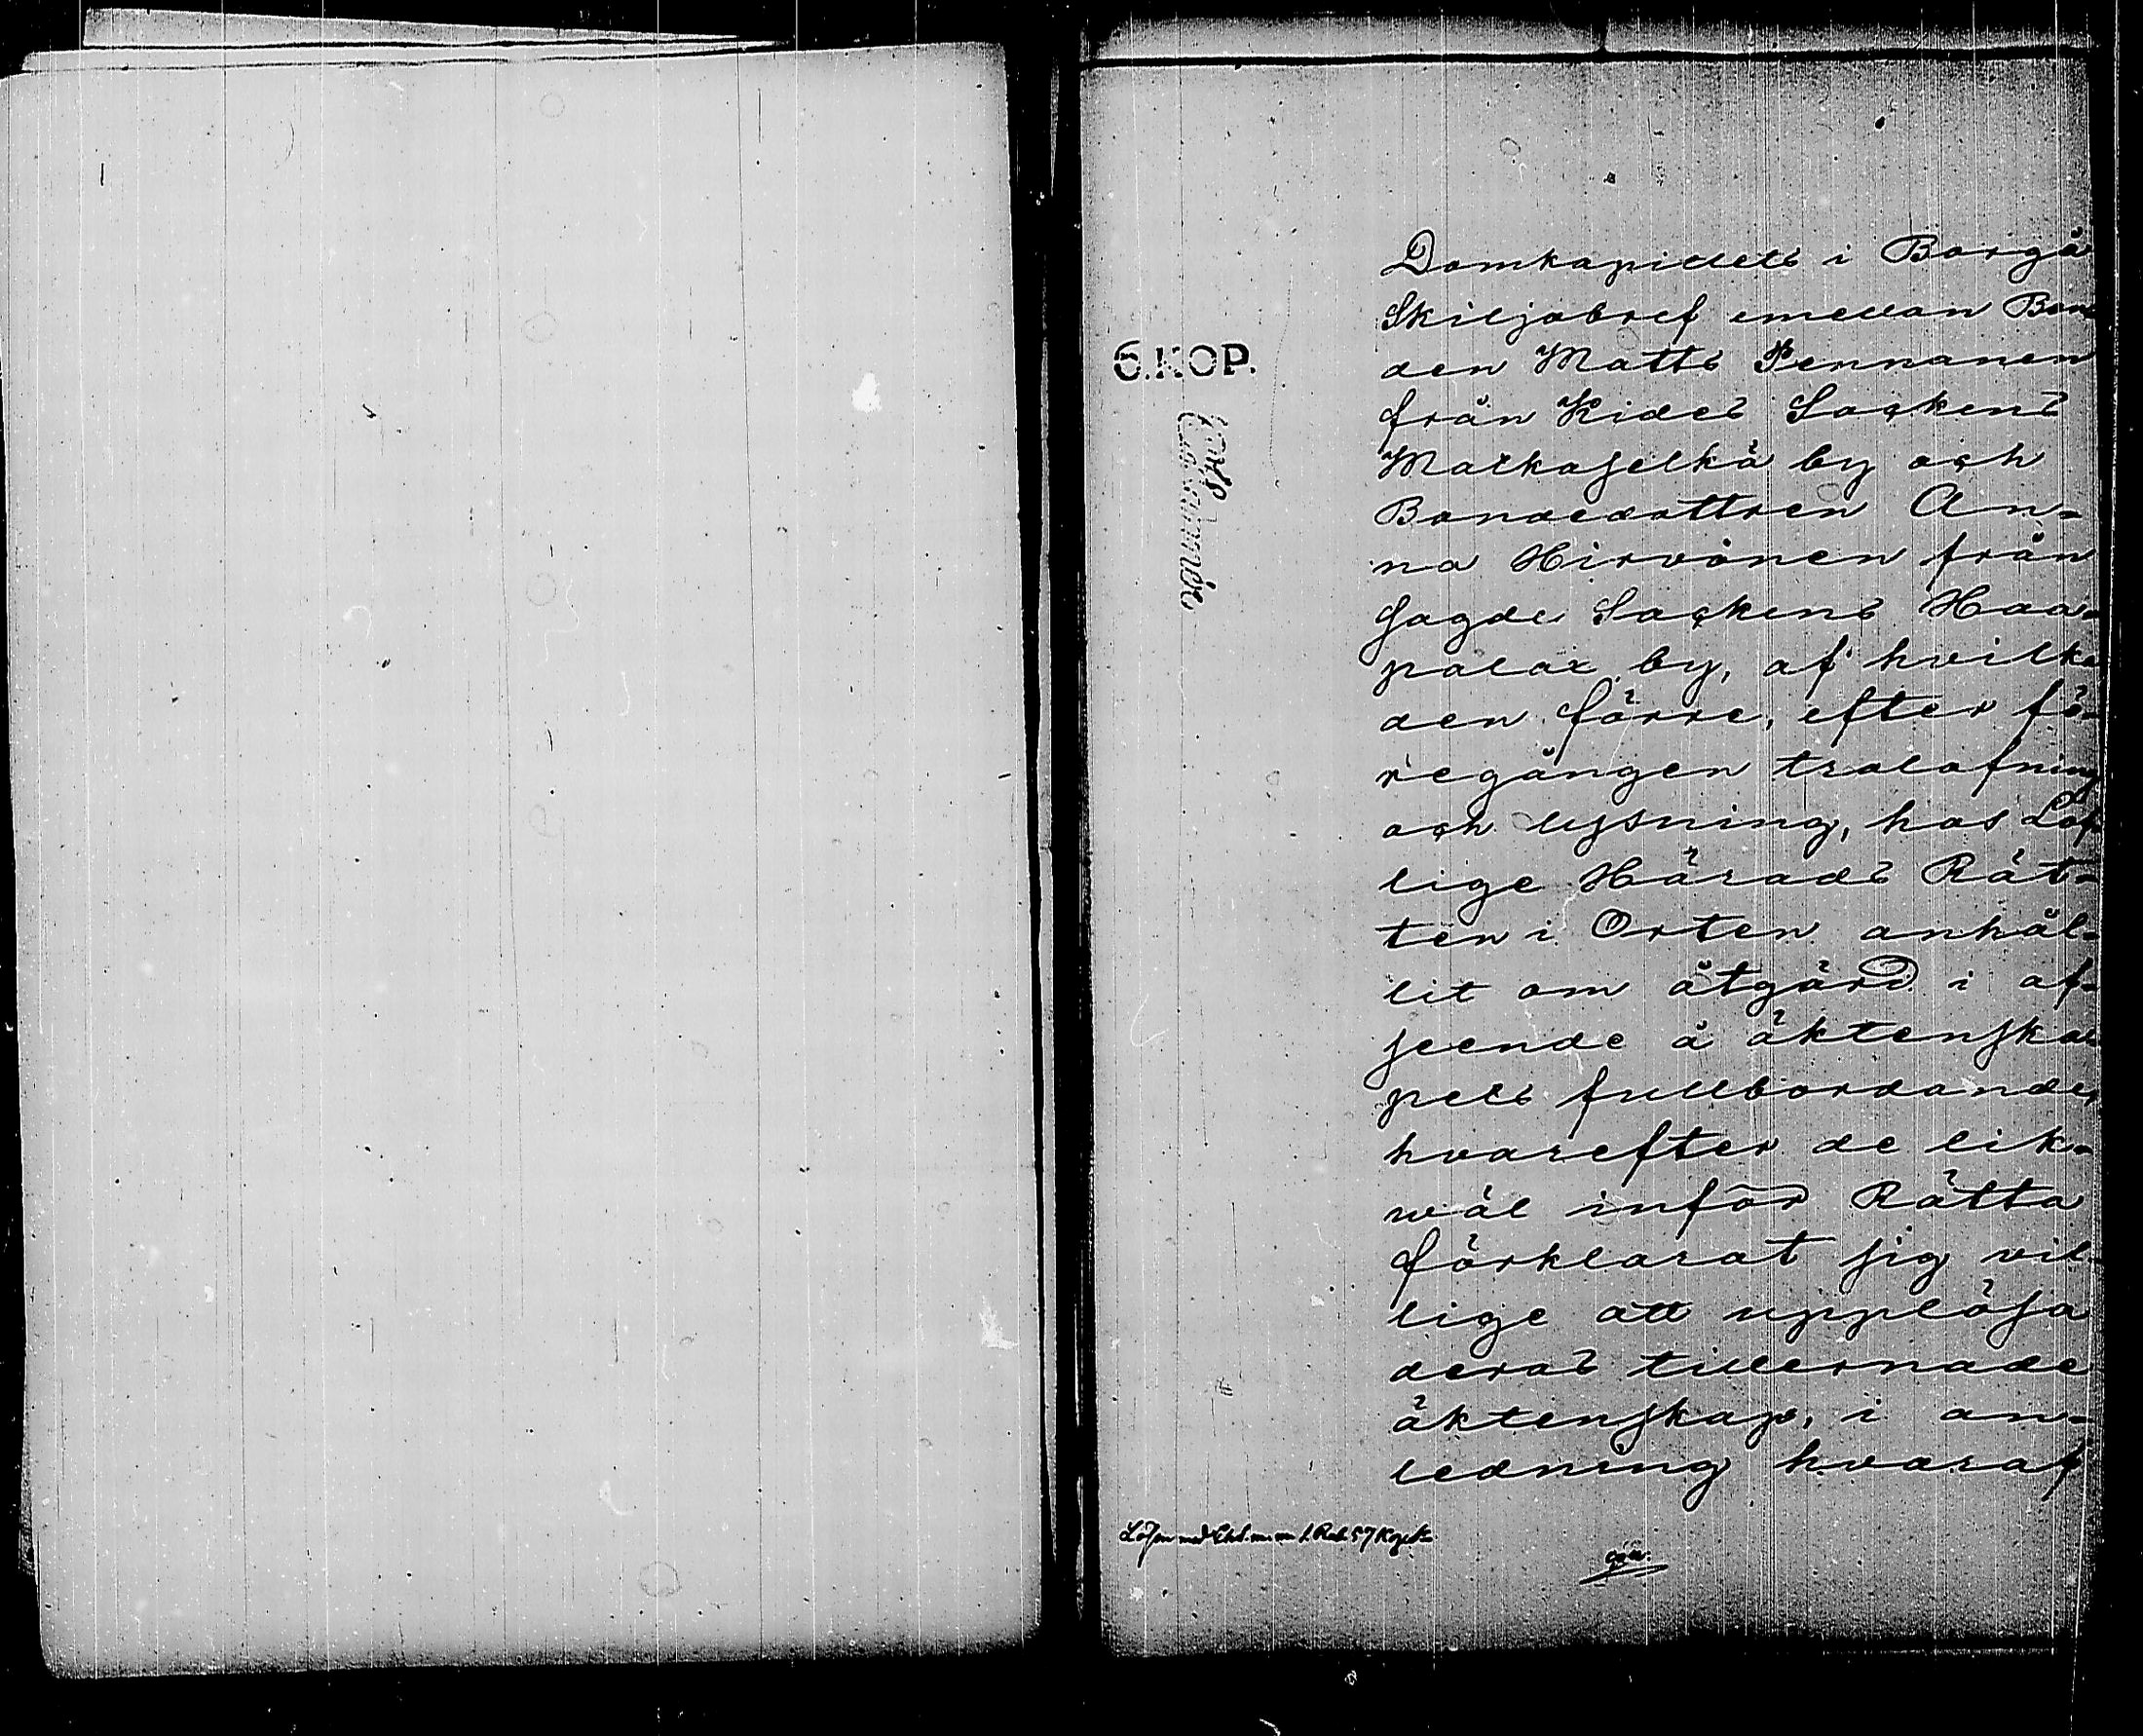 Domkapitlets i Borgå
Skiljobref emellan Bon
den Matts Pennanen
från Kides Sockens
Matkaselkä by och
Bondedottren An-
na Hirvonen från
sagde Sockens Haa-
palax by, af hvilka
den förre, efter fö-
regången trolofning
och lysning, hos Lof
lige Härads Rät-
ten i Orten anhål-
lit om åtgärd i af-
seende å äktenska
pets fullbordande,
hvarefter de lik-
wäl inför Rätta
förklarat sig vil
lige att upplösa
deras tillernade
äktenskap, i an-
ledning hvaraf
6.KOP.
Lösen med 1 Rub 57 Kopek